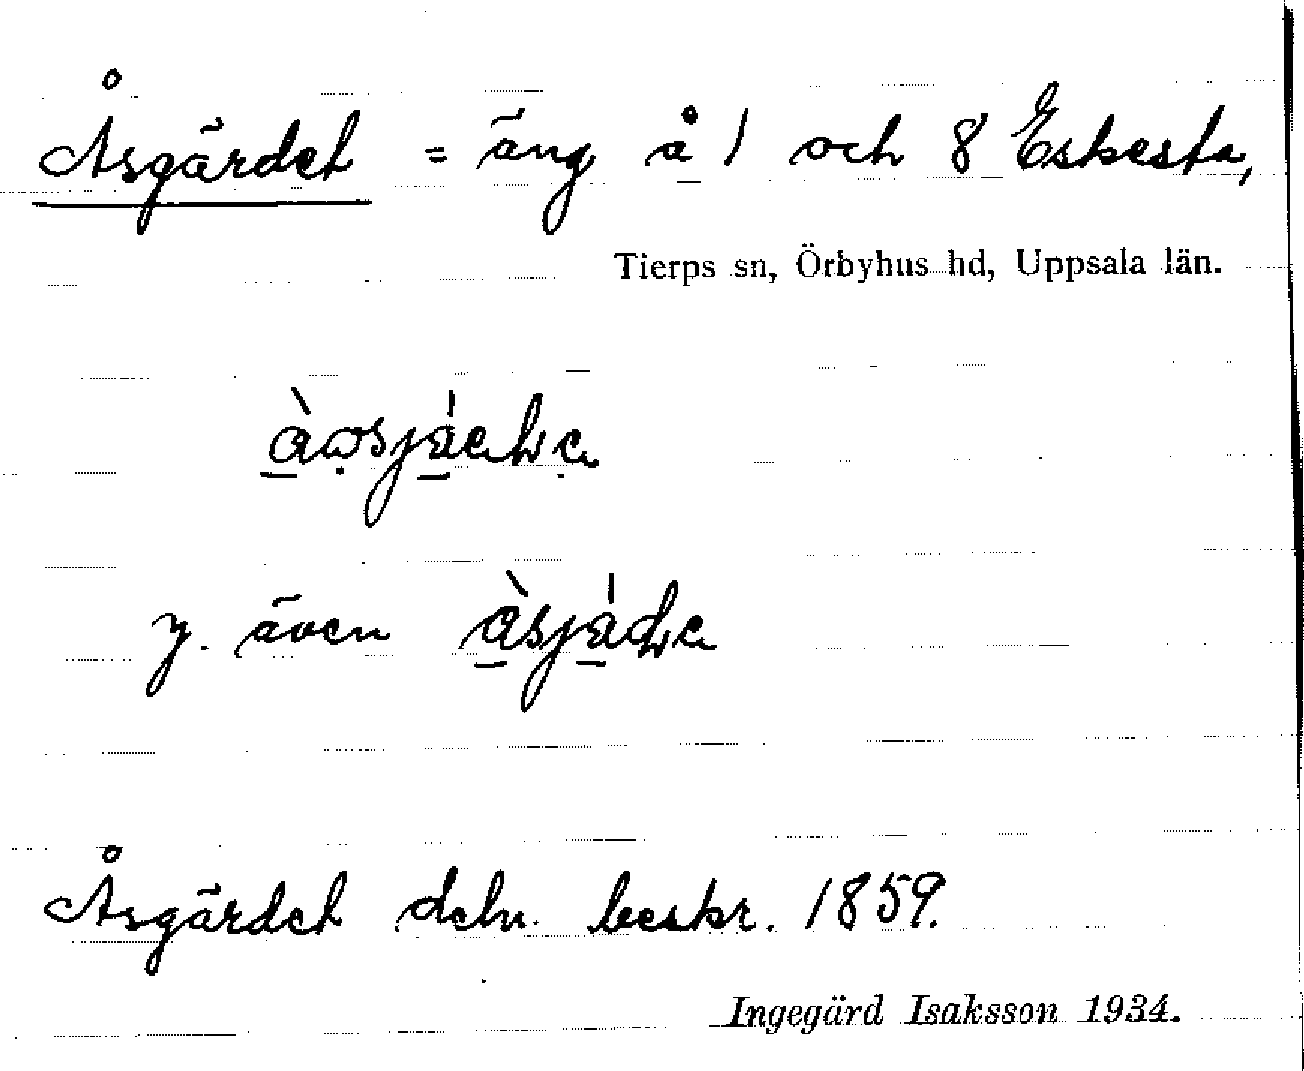 Åsgärdet = äng å 1 och 8 Eskesta,
Tierps sn, Örbyhus hd, Uppsala län.
y. även
Åsgärdet deln. beskr. 1859.
Ingegärd Isaksson 1934.